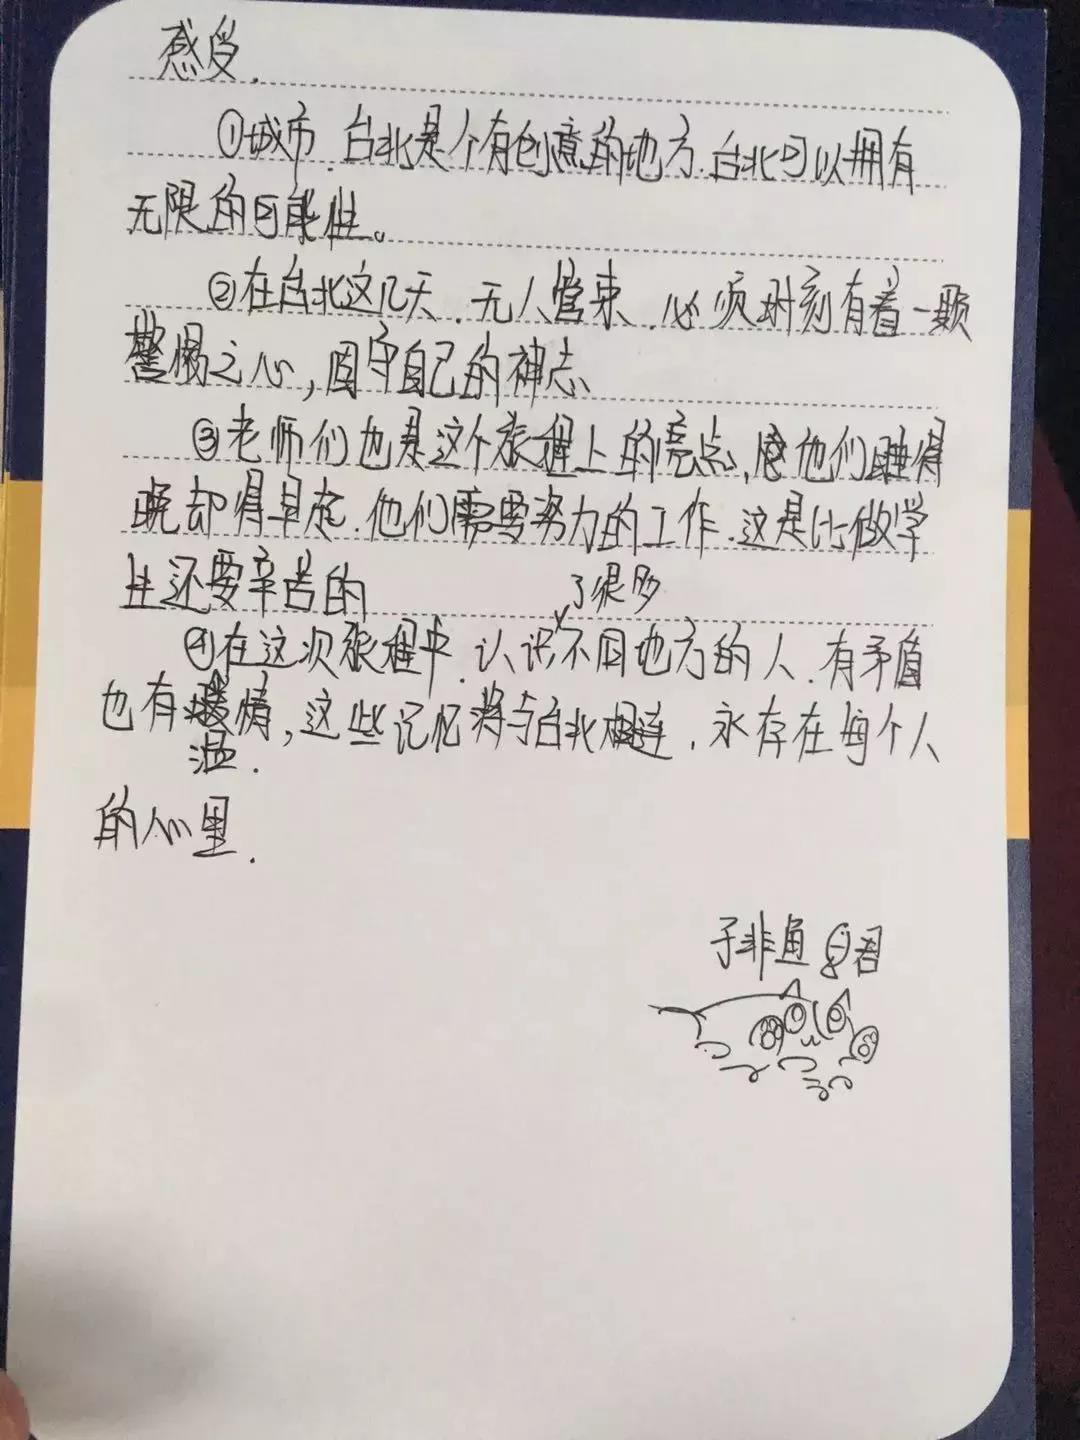 感受.
①城市.台北是个有创意的地方.台北可以拥有
无限的可能性。
②在台北这几天.无人管束.必须时刻有着一颗
警惕之心,固守自己的神志
③老师们也是这个旅程上的亮点,他们睡得
晚却得早起.他们需要努力的工作.这是比做学
生还要辛苦的
了很多
④在这次旅程中.认识不同地方的人.有矛盾
也有温情,这些记忆将与台北相连.永存在每个人
的心里.
子非鱼 君